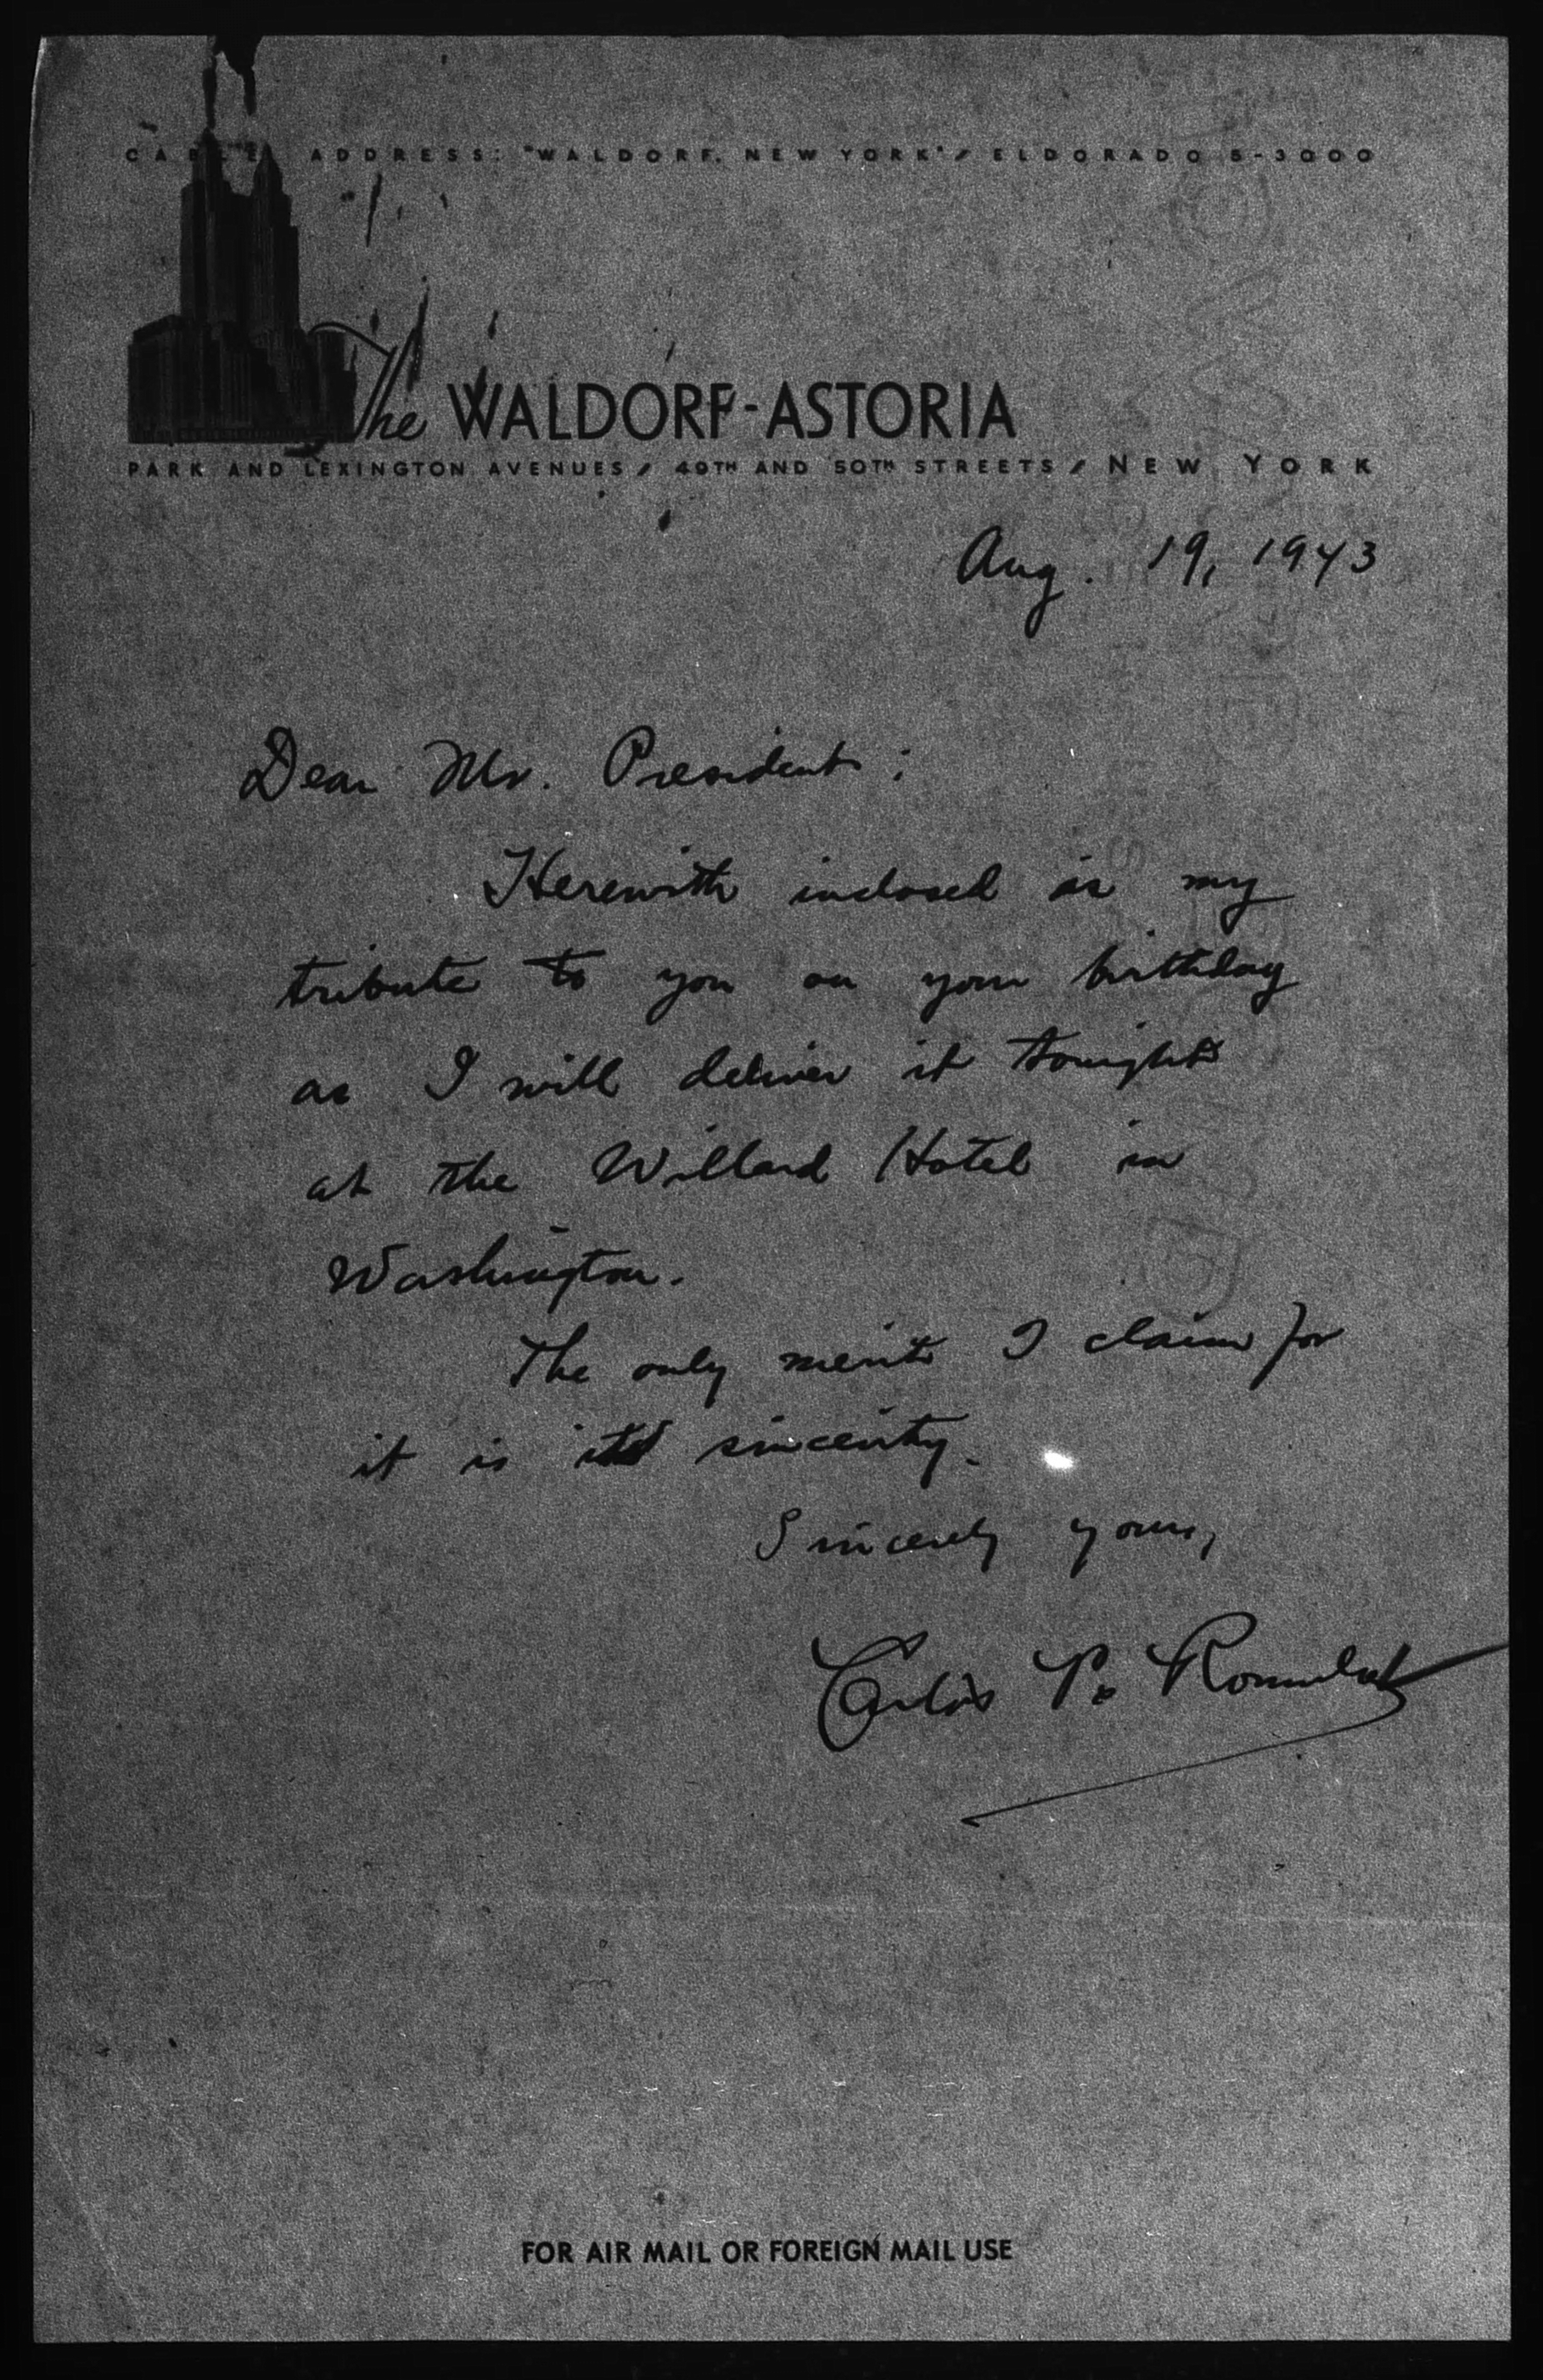 CABLE ADDRESS: "WALDORF, NEW YORK" / ELDORADO 5-3000
The WALDORF-ASTORIA
PARK AND LEXINGTON AVENUES / 49TH AND 50TH STREETS / NEW YORK
Aug. 19, 1943
Dear Mr. President:
Herewith inclosed is my
tribute to you on your birthday
as I will deliver it tonight
at the Willard Hotel in
Washington.
The only merit I claim for
it is its sincerity.
Sincerely yours,
Carlos P. Romulo
FOR AIR MAIL OR FOREIGN MAIL USE